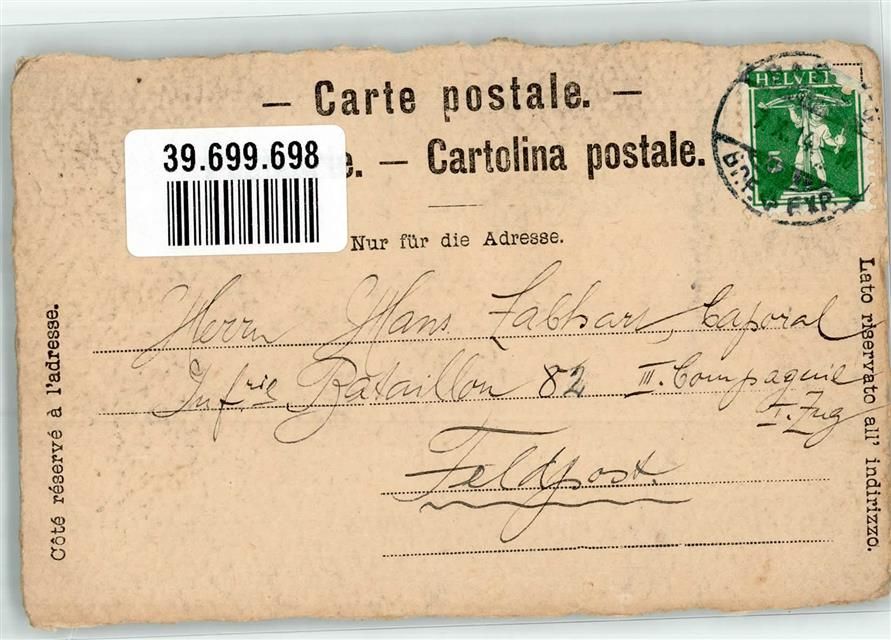 — Carte postale. —
39.699.698
e. — Cartolina postale.
Nur für die Adresse.
HELVETIA
5
Côté réservé à l'adresse.
Lato riservato all' indirizzo.
Herrn Hans Caporal
Infrie Bataillon 82 III. Compagnie
I. Zug
Feldpost.